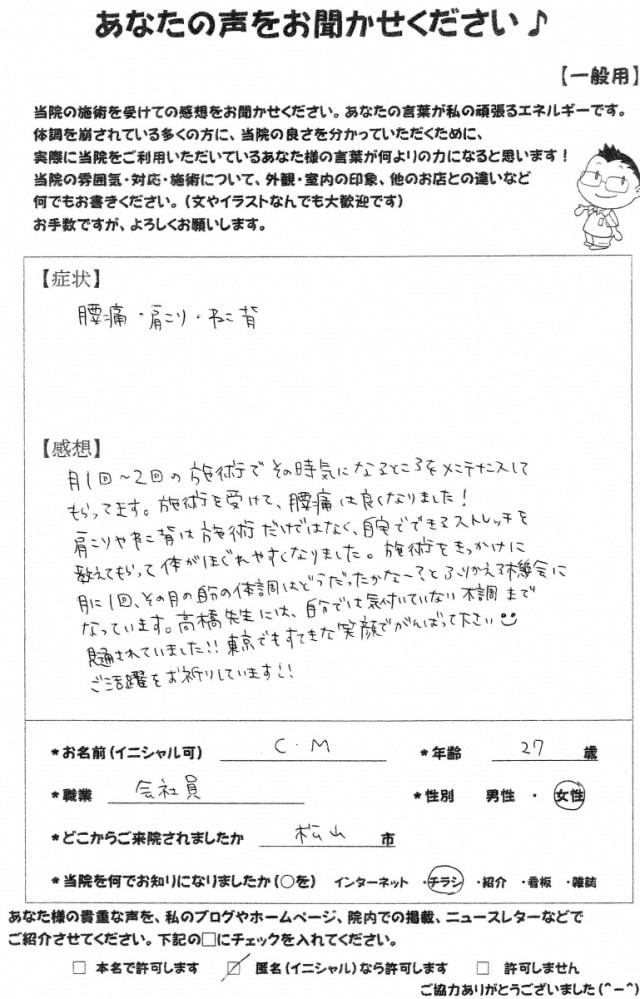 あなたの声をお聞かせください♪
【一般用】
当院の施術を受けての感想をお聞かせください。あなたの言葉が私の頑張るエネルギーです。
体調を崩されている多くの方に、当院の良さを分かっていただくために、
実際に当院をご利用いただいているあなた様の言葉が何よりの力になると思います！
当院の雰囲気・対応・施術について、外観・室内の印象、他のお店との違いなど
何でもお書きください。（文やイラストなんでも大歓迎です）
お手数ですが、よろしくお願いします。
【症状】
腰痛・肩こり・ねこ背
【感想】
月1回～2回の施術でその時気になるところをメンテナンスして
もらってます。施術を受けて、腰痛は良くなりました！
肩こりやねこ背は施術だけではなく、自宅でできるストレッチを
教えてもらって体がほぐれやすくなりました。施術をきっかけに
月に1回、その月の自分の体調はどうだったかな～？とふりかえる機会に
なっています。高橋先生には、自分では気付いていない不調まで
見通されていました!! 東京でもすてきな笑顔でがんばって下さい☺
ご活躍をお祈りしています!!
*お名前（イニシャル可） C・M *年齢 27 歳
*職業 会社員 *性別 男性 ・ 女性
*どこからご来院されましたか 松山 市
*当院を何でお知りになりましたか（○を） インターネット ・チラシ ・紹介 ・看板 ・雑誌
あなた様の貴重な声を、私のブログやホームページ、院内での掲載、ニュースレターなどで
ご紹介させてください。下記の□にチェックを入れてください。
□ 本名で許可します ☑ 匿名（イニシャル）なら許可します □ 許可しません
ご協力ありがとうございました（＾－＾）